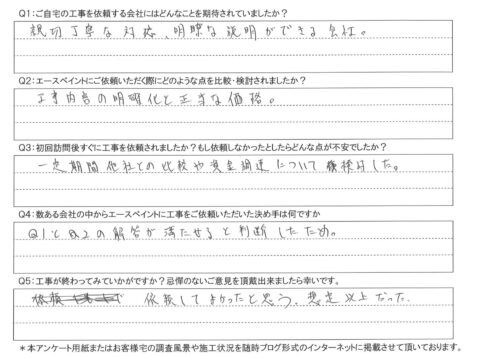 Q1:ご自宅の工事を依頼する会社にはどんなことを期待されていましたか?
親切丁寧な対応、明瞭な説明ができる会社。
Q2:エースペイントにご依頼いただく際にどのような点を比較・検討されましたか?
工事内容の明確化と正当な価格。
Q3:初回訪問後すぐに工事を依頼されましたか?もし依頼しなかったとしたらどんな点が不安でしたか?
一定期間他社との比較や資金調達について検討した。
Q4:数ある会社の中からエースペイントに工事をご依頼いただいた決め手は何ですか
Q1とQ2の解答が満たせると判断したため。
Q5:工事が終わってみていかがですか?忌憚のないご意見を頂戴出来ましたら幸いです。
依頼してよかったと思う、想定以上だった。
*本アンケート用紙またはお客様宅の調査風景や施工状況を随時ブログ形式のインターネットに掲載させて頂いております。